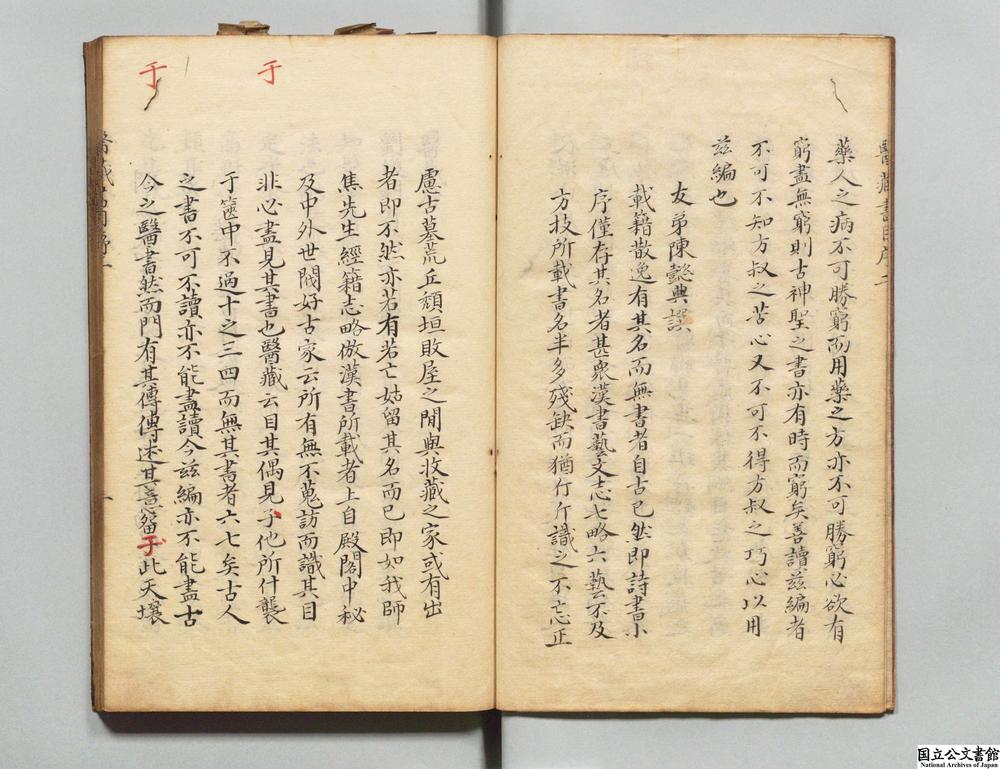 藥人之病不可勝窮而用藥之方亦不可勝窮心欲有
窮盡無窮則古神聖之書亦有時而窮矣善讀茲編者
不可不知方叔之苦心又不可不得方叔之巧心以用
茲編也
友弟陳懿典譔
載籍散逸有其名而無書者自古已然即詩書小
序僅存其名者甚衆漢書藝文志七略六藝不及
方技所載書名半多殘缺而猶斤斤識之不忘正
慮古墓荒丘頹垣敗屋之間與收藏之家或有出
者即不然亦若有若亡姑留其名而已即如我師
焦先生經籍志略倣漢書所載者上自殿閣中秘
及中外世閥好古家云所有無不蒐訪而識其目
非必盡見其書也醫藏云目其偶見于他所什襲
于篋中不過十之三四而無其書者六七矣古人
之書不可不讀亦不能盡讀今茲編亦不能盡古
今之醫書然而門有其傳傳述其意留于此天壤
于
于
国立公文書館
National Archives of Japan